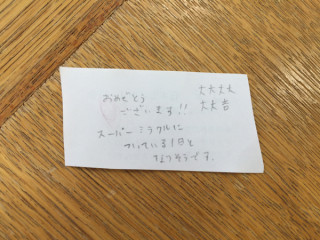 おめでとう
ございます!!
スーパーミラクルに
ついている1日と
なりそうです。
大大大
大大吉